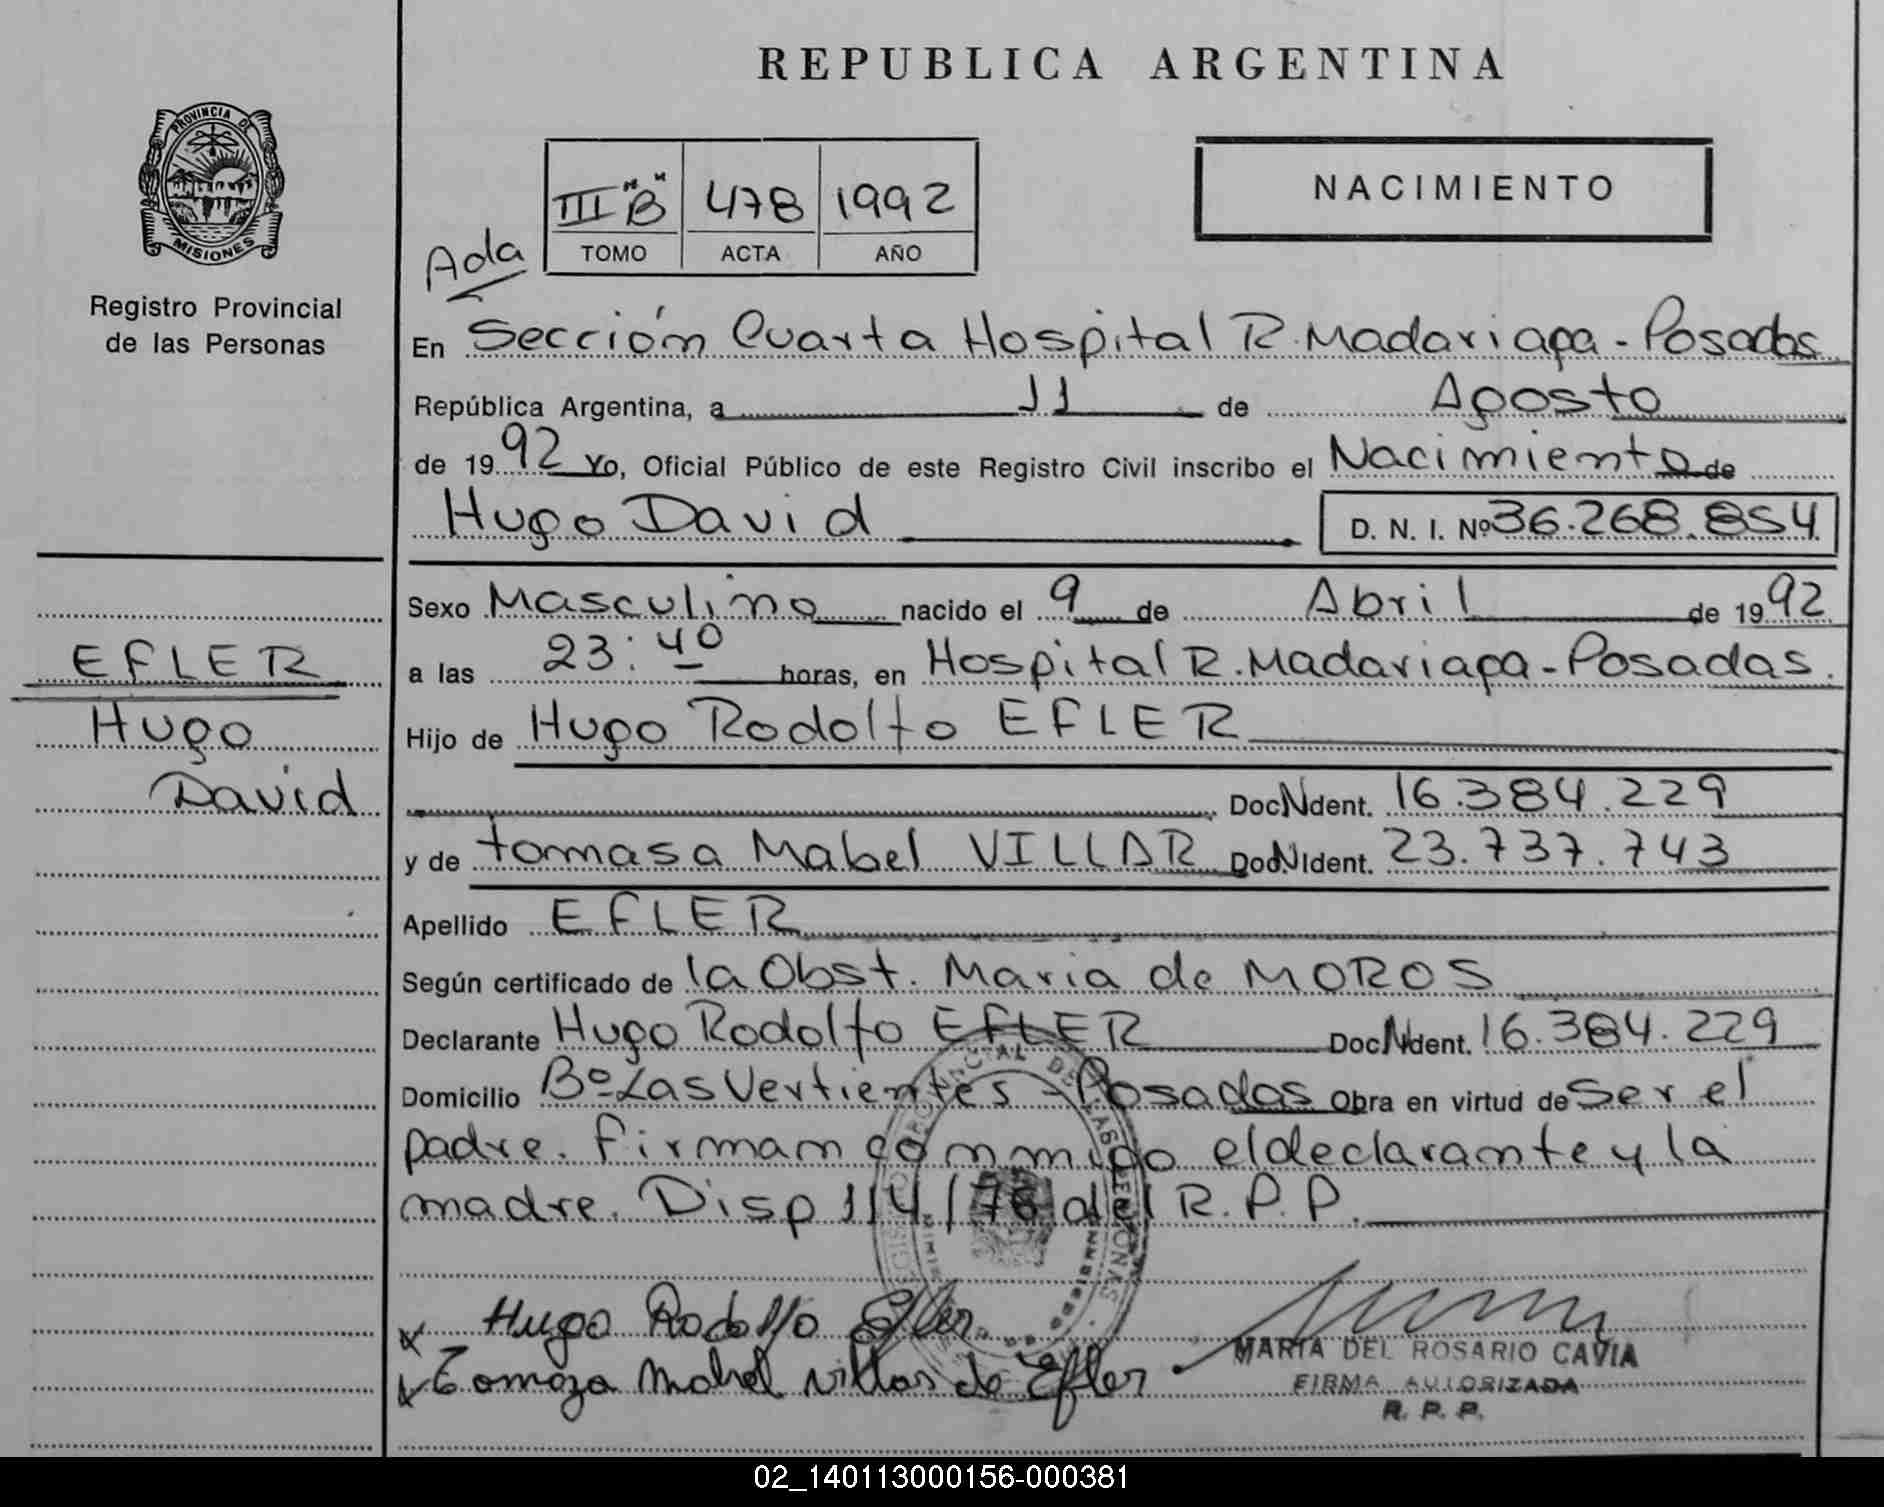 REPUBLICA ARGENTINA
PROVINCIA DE
MISIONES
Registro Provincial
de las Personas
III "B" 478 1992
TOMO ACTA AÑO
NACIMIENTO
Ada
En Sección Cuarta Hospital R. Madariaga - Posadas
República Argentina, a 11 de Agosto
de 1992 yo, Oficial Público de este Registro Civil inscribo el Nacimiento de
Hugo David D. N. I. Nº 36.268.854
Sexo Masculino nacido el 9 de Abril de 1992
a las 23:40 horas, en Hospital R. Madariaga - Posadas.
Hijo de Hugo Rodolfo EFLER
Doc. N Ident. 16.384.229
y de tomasa Mabel VILLAR Doc. N Ident. 23.737.743
Apellido EFLER
Según certificado de la Obst. Maria de MOROS
Declarante Hugo Rodolfo EFLER Doc. N Ident. 16.384.229
Domicilio Bº Las Vertientes - Posadas Obra en virtud de ser el
padre. firman conmigo el declarante y la
madre. Disp 114/78 del R.P.P.
EFLER
Hugo
David
Hugo Rodolfo Efler
Tomaza Mabel Villar de Efler
MARIA DEL ROSARIO CAVIA
FIRMA AUTORIZADA
R. P. P.
02_140113000156-000381